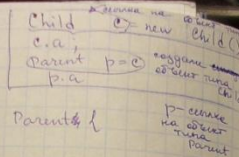 ссылка на объект типа
Child c = new Child(
c.a;
Parent p = c
p.a
создали
объект типа
Parent {
p - ссылка
на объект
типа
Parent